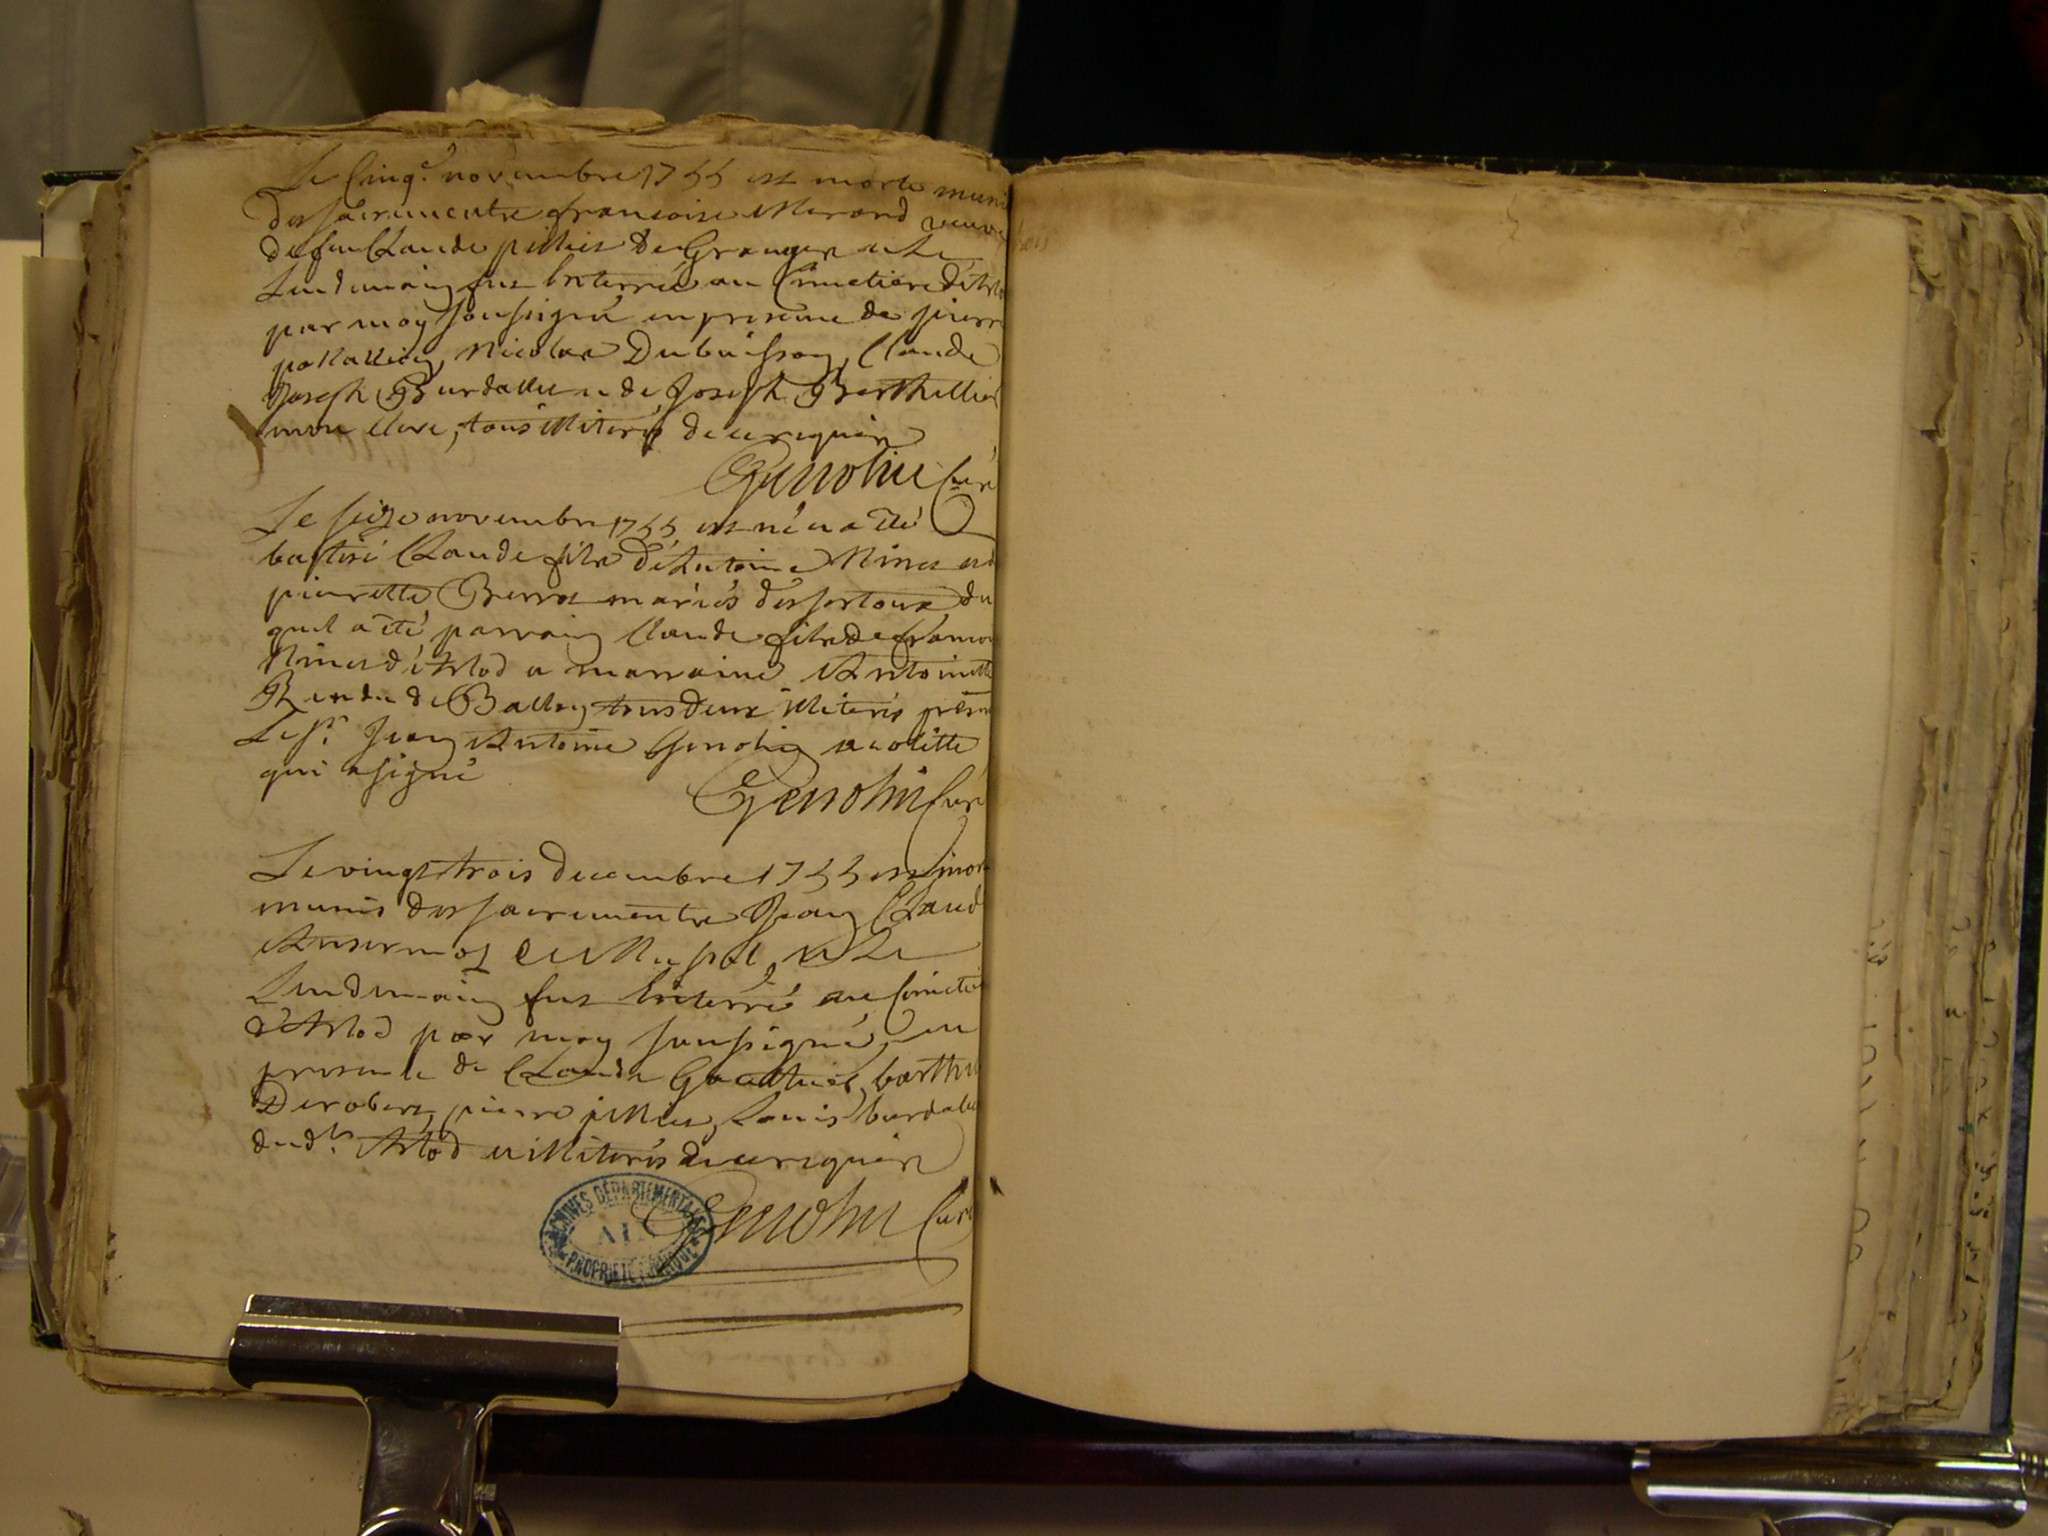 Le Cinq.e novembre 1755 est morte munie
des sacrementz francoise Marand veuve
de feu Claude pilliet De Granger et Le
Lendemain fut Enterrée au Cimetiere d'Arlod
par moy soussigné en presence de pierre
Nicolas Dubuisson, Claude
Joseph Burdallet et de Joseph Berthellier
mon clerc, tous illiterés de ce requis
Genolin Curé
Le seize novembre 1755 est né et a été
baptisé Claude filz d'Antoine Ninet et d
pierrette Berrot mariés des sertoux du
quel a été parrain Claude filz de francois
Ninet d'Arlod et marraine Antoinette
Rendu de Ballon tous deux illiterés present
Le sr. Jean Antoine Genolin acolitte
qui a signé
Genolin Curé
Le vingt trois decembre 1755 est mort
munis des sacrementz Jean Claude
Ansermoz et Le
Lendemain fut Enterré au Cimetiere
d'Arlod par moy soussigné, en
presence de Claude Gauthier, barthel
Derobert, pierre pilliet, Louis burdallet
dudt. Arlod illiterés de ce requis
Genolin Curé
ARCHIVES DÉPARTEMENTALES
AIN
PROPRIÉTÉ PUBLIQUE